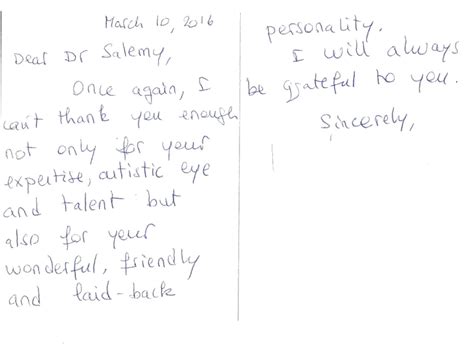 March 10, 2016
Dear Dr Salemy,
Once again, I
can't thank you enough
not only for your
expertise, autistic eye
and talent but
also for your
wonderful, friendly
and laid-back
personality.
I will always
be grateful to you.
Sincerely,